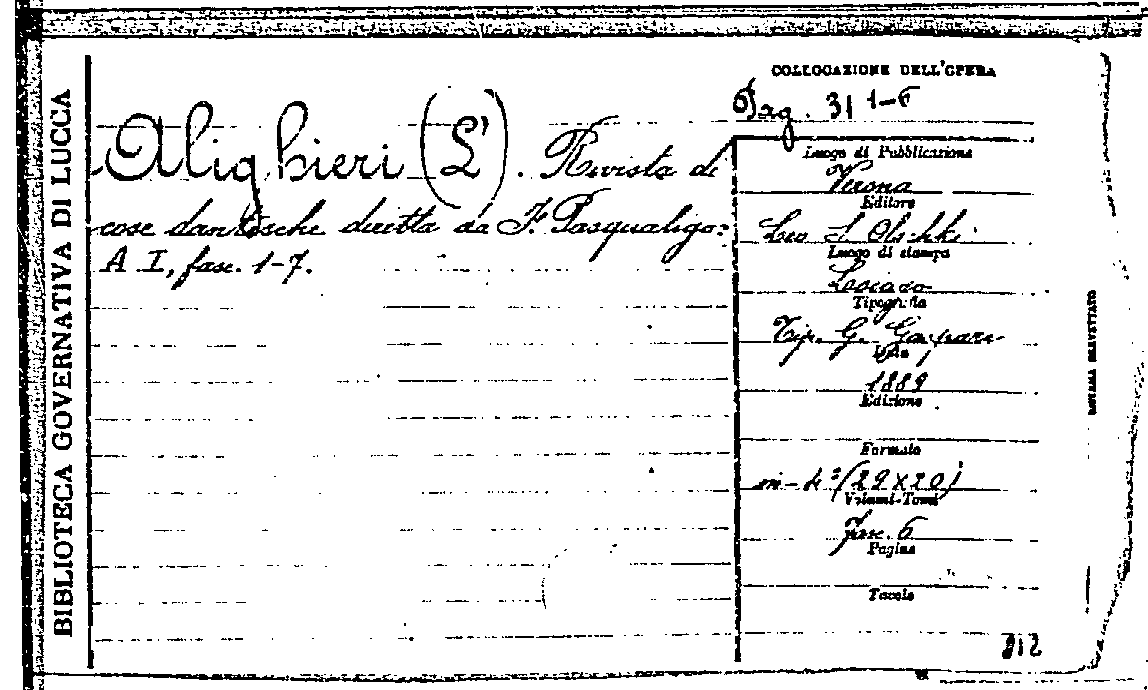 BIBLIOTECA GOVERNATIVA DI LUCCA
Alighieri (L'). Rivista di
cose dantesche diretta da F. Pasqualigo:
A I, fasc. 1-7.
COLLOCAZIONE DELL'OPERA
31 1-6
Luogo di Pubblicazione
Verona
Editore
Leo S. Olschki
Luogo di stampa
Lonigo
Tipografia
Tip. G. Gaspari
Data
1889
Edizione
Formato
in-4° (29x20)
Volumi-Tomi
Fasc. 6
Pagine
Tavole
212